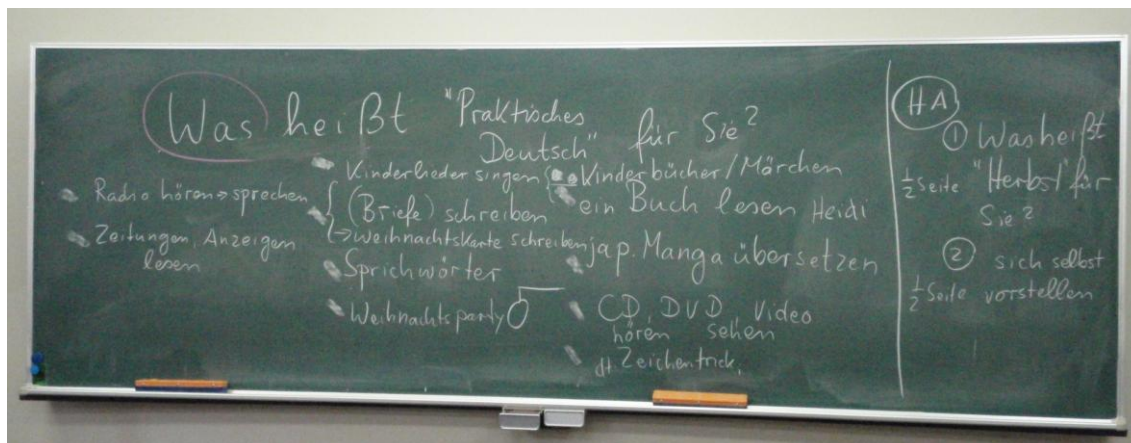 Was heißt "Praktisches Deutsch" für Sie?
Radio hören → sprechen
Zeitungen, Anzeigen
lesen
Kinderlieder singen
(Briefe) schreiben
→ Weihnachtskarte schreiben
Sprichwörter
Weihnachtsparty
Kinderbücher/Märchen
ein Buch lesen Heidi
jap. Manga übersetzen
CD, DVD, Video
hören sehen
dt. Zeichentrick,
HA
① Was heißt
½ Seite "Herbst" für
Sie?
② sich selbst
½ Seite vorstellen